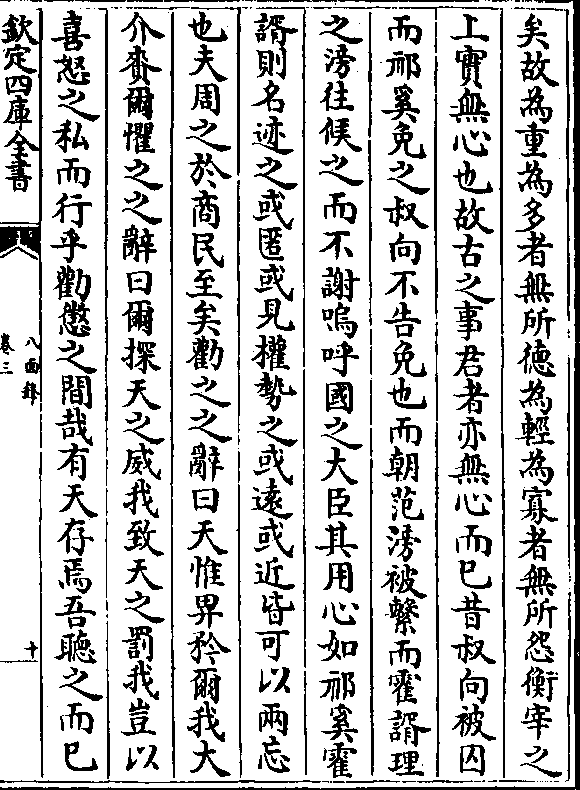 矣故為重為多者無所德為輕為寡者無所怨衡宰之
上實無心也故古之事君者亦無心而已昔叔向被囚
而祁奚免之叔向不告免也而朝范滂被繫而霍諝理
之滂往候之而不謝嗚呼國之大臣其用心如祁奚霍
諝則名迹之或匿或見權勢之或遠或近皆可以兩忘
也夫周之於商民至矣勸之之辭曰天惟畀矜爾我大
介賚爾懼之之辭曰爾探天之威我致天之罰我豈以
喜怒之私而行乎勸懲之間哉有天存焉吾聽之而已
欽定四庫全書
八面鋒
卷三
十